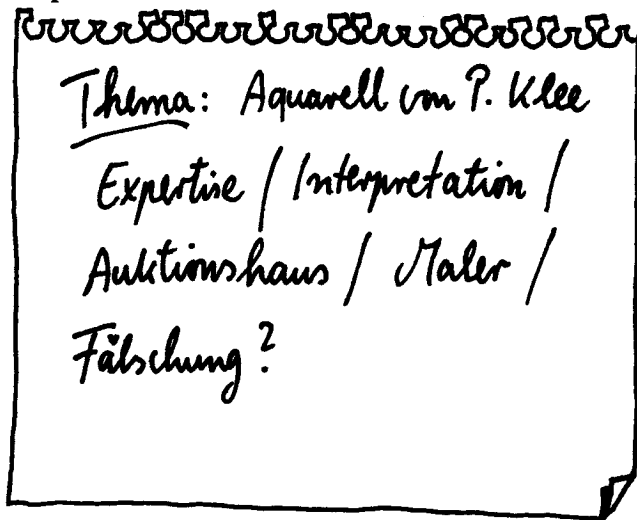 Thema: Aquarell von P. Klee
Expertise / Interpretation /
Auktionshaus / Maler /
Fälschung?